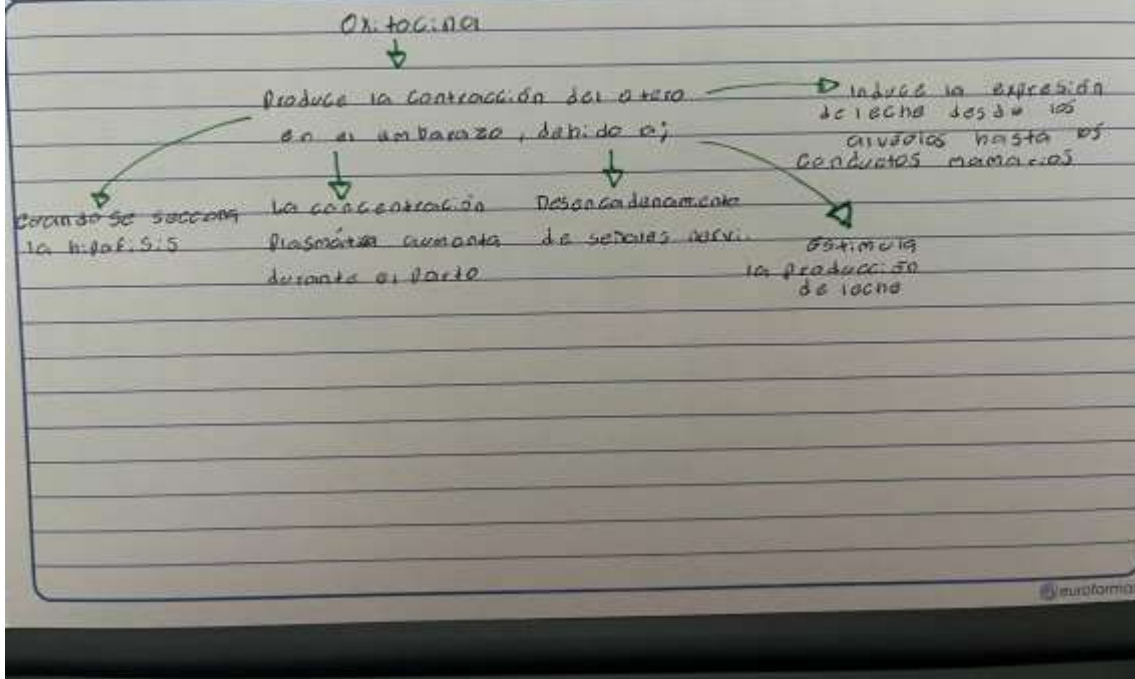 Oxitocina
Produce la contracción del utero
en el embarazo, debido a;
Induce la expresión
de leche desde los
alveolos hasta los
conductos mamarios
Cuando se secciona
la hipofisis
La concentración
Plasmática aumenta
durante el parto
Desencadenamiento
de señales nervi..
Estimula
la producción
de leche
euroforma